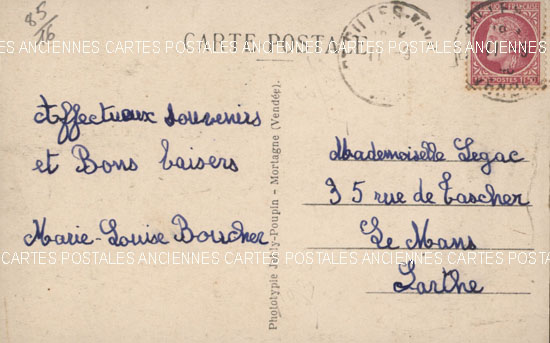 85
16
CARTE POSTALE
CARTES POSTALES ANCIENNES CARTES POSTALES ANCIENNES CARTES POSTALES ANCIENNES
POSTES
Affectueux souvenirs
et Bons baisers
Marie-Louise Boucher
Phototypie Jehly-Poupin - Mortagne (Vendée).
Mademoiselle Legac
35 rue de Tascher
Le Mans
Sarthe
CARTES POSTALES ANCIENNES CARTES POSTALES ANCIENNES CARTES POSTALES ANCIENNES